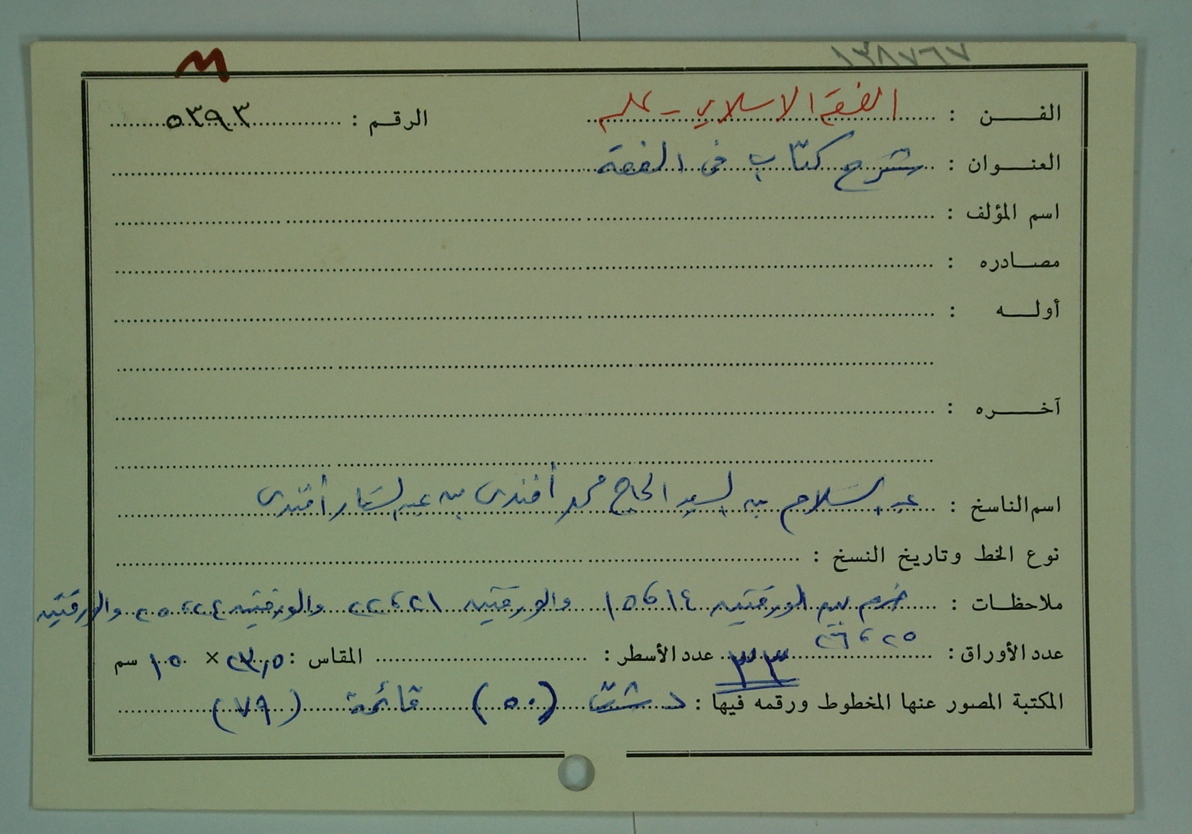 ١٣٨٧٦٧
الفن : الفقه الاسلامي - عام الرقم : ٥٣٩٣
العنوان : شرح كتاب في الفقه
اسم المؤلف :
مصادره :
أوله :
آخره :
اسم الناسخ : عبد السلام بن السيد الحاج محمد أفندي بن عبد الستار أفندي
نوع الخط وتاريخ النسخ :
ملاحظات : خرم بين الورقتين ١٤ و ١٥ والورقتين ٢١ و ٢٢ والورقتين ٢٤ و ٢٥ والورقتين
٢٥ و ٢٦
عدد الأوراق : ٣٣ عدد الأسطر : المقاس : ٢٣,٥ × ١٥ سم
المكتبة المصور عنها المخطوط ورقمه فيها : دشت (٥٠) قائمة (٧٩)